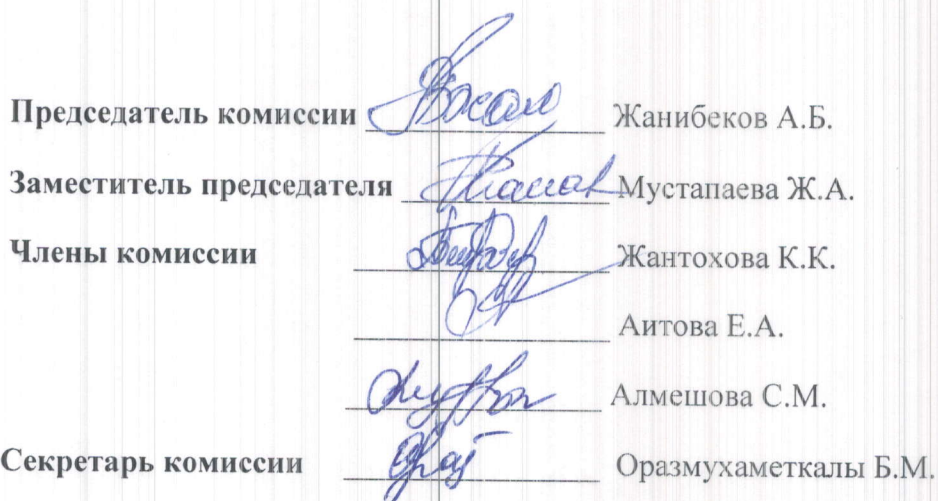 Председатель комиссии Жанибеков А.Б.
Заместитель председателя Мустапаева Ж.А.
Члены комиссии Жантохова К.К.
Аитова Е.А.
Алмешова С.М.
Секретарь комиссии Оразмухаметкалы Б.М.